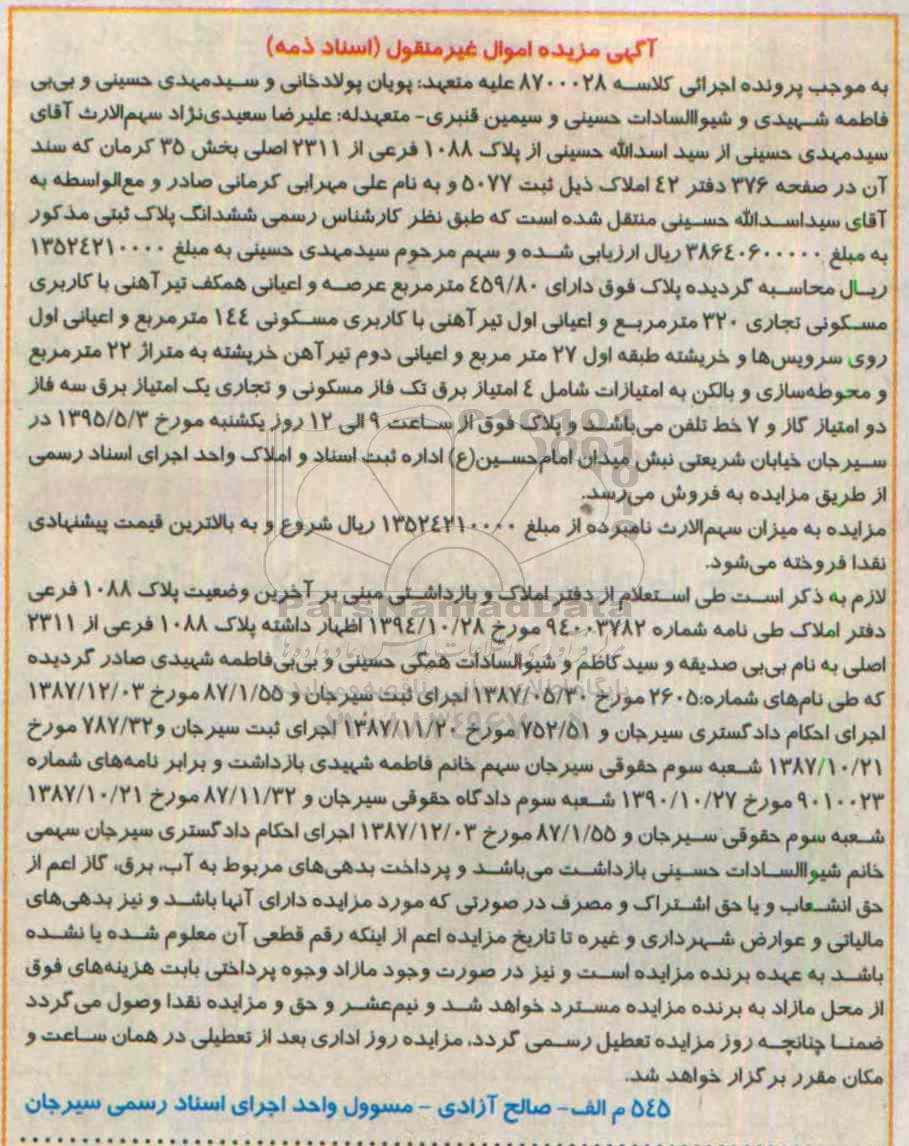 آگهی مزیده اموال غیرمنقول (اسناد ذمه)
به موجب پرونده اجرائی کلاسه ۸۷۰۰۰۲۸ علیه متعهد: پویان پولادخانی و سیدمهدی حسینی و بی‌بی
فاطمه شهیدی و شیواالسادات حسینی و سیمین قنبری- متعهدله: علیرضا سعیدی‌نژاد سهم‌الارث آقای
سیدمهدی حسینی از سید اسدالله حسینی از پلاک ۱۰۸۸ فرعی از ۲۳۱۱ اصلی بخش ۳۵ کرمان که سند
آن در صفحه ۳۷۶ دفتر ۴۲ املاک ذیل ثبت ۵۰۷۷ و به نام علی مهرابی کرمانی صادر و مع‌الواسطه به
آقای سیداسدالله حسینی منتقل شده است که طبق نظر کارشناس رسمی ششدانگ پلاک ثبتی مذکور
به مبلغ ۳۸۶۴۰۶۰۰۰۰۰ ریال ارزیابی شده و سهم مرحوم سیدمهدی حسینی به مبلغ ۱۳۵۲۴۲۱۰۰۰۰
ریال محاسبه گردیده پلاک فوق دارای ۴۵۹/۸۰ مترمربع عرصه و اعیانی همکف تیرآهنی با کاربری
مسکونی تجاری ۳۲۰ مترمربع و اعیانی اول تیرآهنی با کاربری مسکونی ۱۴۴ مترمربع و اعیانی اول
روی سرویس‌ها و خرپشته طبقه اول ۲۷ متر مربع و اعیانی دوم تیرآهن خرپشته به متراژ ۲۲ مترمربع
و محوطه‌سازی و بالکن به امتیازات شامل ۴ امتیاز برق تک فاز مسکونی و تجاری یک امتیاز برق سه فاز
دو امتیاز گاز و ۷ خط تلفن می‌باشد و پلاک فوق از ساعت ۹ الی ۱۲ روز یکشنبه مورخ ۱۳۹۵/۵/۳ در
سیرجان خیابان شریعتی نبش میدان امام‌حسین(ع) اداره ثبت اسناد و املاک واحد اجرای اسناد رسمی
از طریق مزایده به فروش می‌رسد.
مزایده به میزان سهم‌الارث نامبرده از مبلغ ۱۳۵۲۴۲۱۰۰۰۰ ریال شروع و به بالاترین قیمت پیشنهادی
نقدا فروخته می‌شود.
لازم به ذکر است طی استعلام از دفتر املاک و بازداشتی مبنی بر آخرین وضعیت پلاک ۱۰۸۸ فرعی
دفتر املاک طی نامه شماره ۹۴۰۰۳۷۸۲ مورخ ۱۳۹۴/۱۰/۲۸ اظهار داشته پلاک ۱۰۸۸ فرعی از ۲۳۱۱
اصلی به نام بی‌بی صدیقه و سیدکاظم و شیوالسادات همگی حسینی و بی‌بی‌فاطمه شهیدی صادر گردیده
که طی نام‌های شماره:۲۶۰۵ مورخ ۱۳۸۷/۰۵/۳۰ اجرای ثبت سیرجان و ۸۷/۱/۵۵ مورخ ۱۳۸۷/۱۲/۰۳
اجرای احکام دادگستری سیرجان و ۷۵۲/۵۱ مورخ ۱۳۸۷/۱۱/۲۰ اجرای ثبت سیرجان و۷۸۷/۳۲ مورخ
۱۳۸۷/۱۰/۲۱ شعبه سوم حقوقی سیرجان سهم خانم فاطمه شهیدی بازداشت و برابر نامه‌های شماره
۹۰۱۰۰۲۳ مورخ ۱۳۹۰/۱۰/۲۷ شعبه سوم دادگاه حقوقی سیرجان و ۸۷/۱۱/۳۲ مورخ ۱۳۸۷/۱۰/۲۱
شعبه سوم حقوقی سیرجان و ۸۷/۱/۵۵ مورخ ۱۳۸۷/۱۲/۰۳ اجرای احکام دادگستری سیرجان سهمی
خانم شیواالسادات حسینی بازداشت می‌باشد و پرداخت بدهی‌های مربوط به آب، برق، گاز اعم از
حق انشعاب و یا حق اشتراک و مصرف در صورتی که مورد مزایده دارای آنها باشد و نیز بدهی‌های
مالیاتی و عوارض شهرداری و غیره تا تاریخ مزایده اعم از اینکه رقم قطعی آن معلوم شده یا نشده
باشد به عهده برنده مزایده است و نیز در صورت وجود مازاد وجوه پرداختی بابت هزینه‌های فوق
از محل مازاد به برنده مزایده مسترد خواهد شد و نیم‌عشر و حق و مزایده نقدا وصول می‌گردد
ضمنا چنانچه روز مزایده تعطیل رسمی گردد، مزایده روز اداری بعد از تعطیلی در همان ساعت و
مکان مقرر برگزار خواهد شد.
۵۴۵ م الف- صالح آزادی - مسوول واحد اجرای اسناد رسمی سیرجان
ParsNamadData